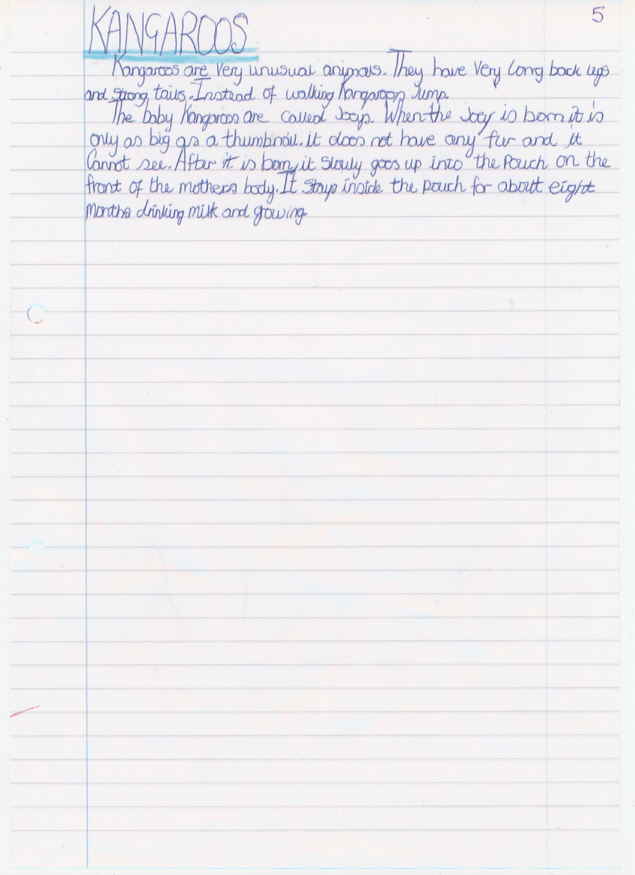 5
KANGAROOS
Kangaroos are very unusual animals. They have very long back legs
and strong tails. Instead of walking Kangaroos Jump.
The baby Kangaroos are called Joeys. When the Joey is born it is
only as big as a thumbnail. it does not have any fur and it
Cannot see. After it is born, it slowly goes up into the pouch on the
front of the mothers body. It stays inside the pouch for about eight
Months drinking milk and growing